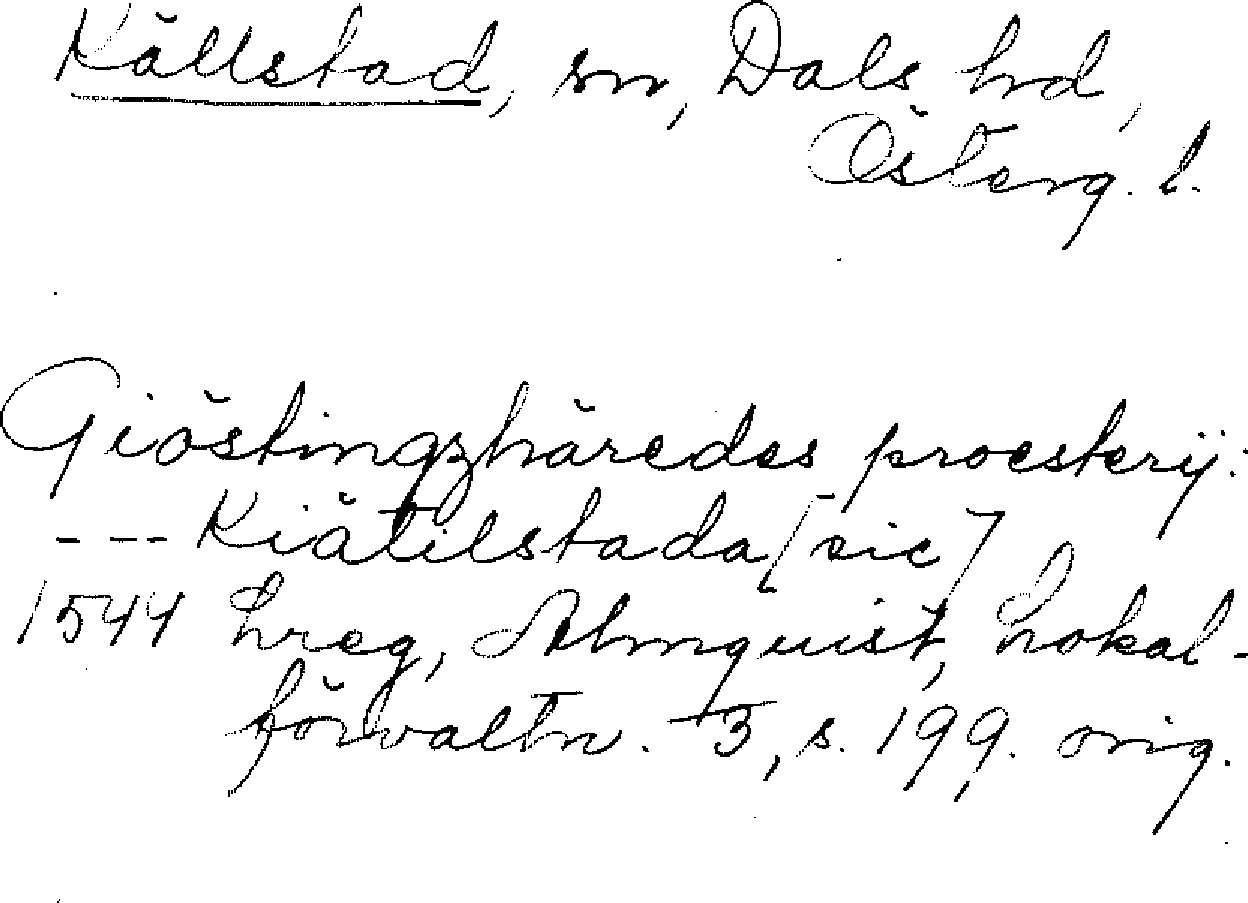 Källstad, sn, Dals hd,
Österg. l.
Giöstingzhäredes proesterij:
--- Kiätilstada [sic]
1544 Lreg, Almquist, Lokal-
förvaltn. 3, s. 199. orig.